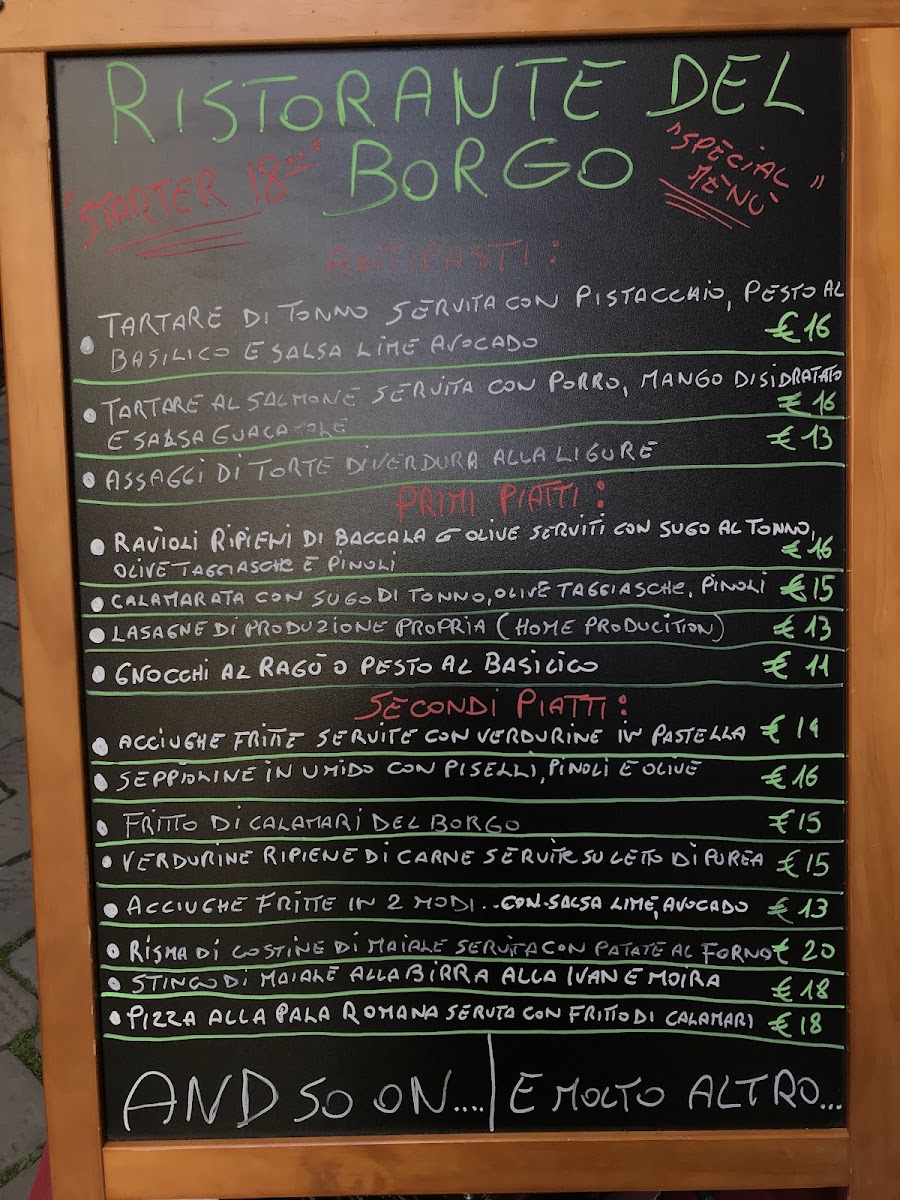 RISTORANTE DEL
BORGO
"STARTER 18="
"SPECIAL
MENÙ"
ANTIPASTI:
• TARTARE DI TONNO SERVITA CON PISTACCHIO, PESTO AL
BASILICO E SALSA LIME AVOCADO € 16
• TARTARE AL SALMONE SERVITA CON PORRO, MANGO DISIDRATATO
E SALSA GUACAMOLE € 16
• ASSAGGI DI TORTE DI VERDURA ALLA LIGURE € 13
PRIMI PIATTI:
• RAVIOLI RIPIENI DI BACCALA E OLIVE SERVITI CON SUGO AL TONNO,
OLIVE TAGGIASCHE E PINOLI € 16
• CALAMARATA CON SUGO DI TONNO, OLIVE TAGGIASCHE, PINOLI € 15
• LASAGNE DI PRODUZIONE PROPRIA (HOME PRODUCITION) € 13
• GNOCCHI AL RAGÙ O PESTO AL BASILICO € 11
SECONDI PIATTI:
• ACCIUGHE FRITTE SERVITE CON VERDURINE IN PASTELLA € 14
• SEPPIOLINE IN UMIDO CON PISELLI, PINOLI E OLIVE € 16
• FRITTO DI CALAMARI DEL BORGO € 15
• VERDURINE RIPIENE DI CARNE SERVITE SU LETO DI PUREA € 15
• ACCIUGHE FRITTE IN 2 MODI.. CON SALSA LIME, AVOCADO € 13
• RISMA DI COSTINE DI MAIALE SERVITA CON PATATE AL FORNO € 20
• STINGO DI MAIALE ALLA BIRRA ALLA IVAN E MOIRA € 18
• PIZZA ALLA PALA ROMANA SERUTA CON FRITTO DI CALAMARI € 18
AND SO ON.... E MOLTO ALTRO...